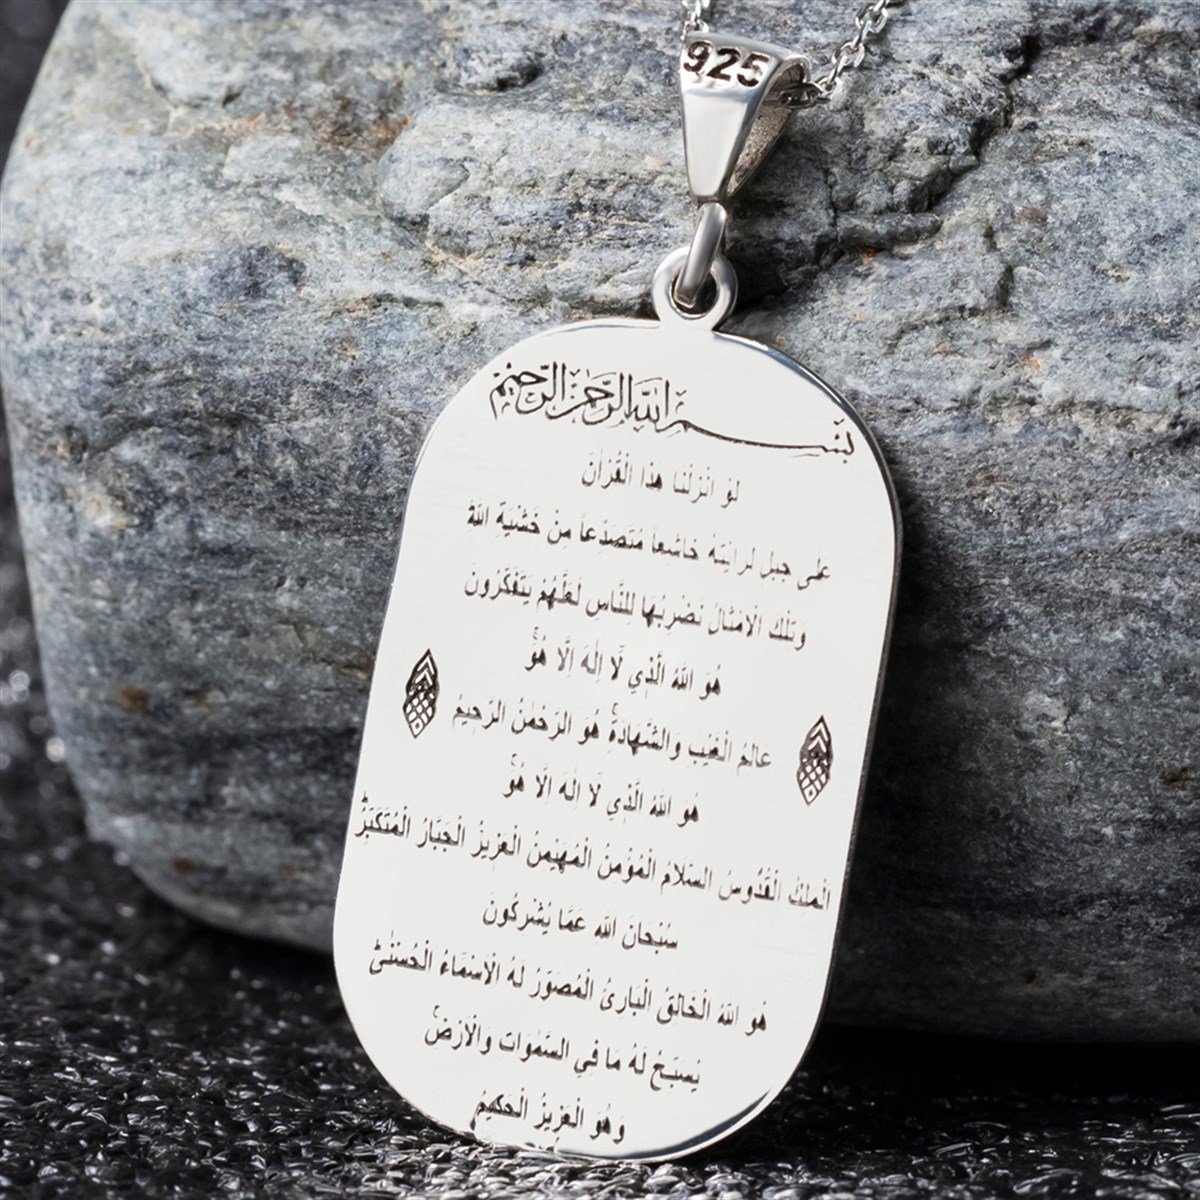 925
بسم الله الرحمن الرحيم
لَوْ اَنْزَلْنَا هٰذَا الْقُرْاٰنَ
عَلٰى جَبَلٍ لَرَاَيْتَهُ خَاشِعاً مُتَصَدِّعاً مِنْ خَشْيَةِ اللّٰهِ
وَتِلْكَ الْاَمْثَالُ نَضْرِبُهَا لِلنَّاسِ لَعَلَّهُمْ يَتَفَكَّرُونَ
هُوَ اللّٰهُ الَّذِي لَٓا اِلٰهَ اِلَّا هُوَۚ
عَالِمُ الْغَيْبِ وَالشَّهَادَةِۚ هُوَ الرَّحْمٰنُ الرَّحِيمُ
هُوَ اللّٰهُ الَّذِي لَٓا اِلٰهَ اِلَّا هُوَۚ
اَلْمَلِكُ الْقُدُّوسُ السَّلَامُ الْمُؤْمِنُ الْمُهَيْمِنُ الْعَزِيزُ الْجَبَّارُ الْمُتَكَبِّرُۜ
سُبْحَانَ اللّٰهِ عَمَّا يُشْرِكُونَ
هُوَ اللّٰهُ الْخَالِقُ الْبَارِئُ الْمُصَوِّرُ لَهُ الْاَسْمَٓاءُ الْحُسْنٰىۜ
يُسَبِّحُ لَهُ مَا فِي السَّمٰوَاتِ وَالْاَرْضِۚ
وَهُوَ الْعَزِيزُ الْحَكِيمُ